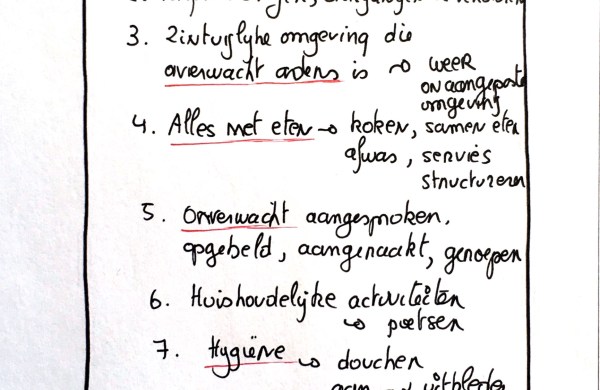 3. Zintuiglijke omgeving die
overwacht anders is → WEER
onaangepaste
omgeving
4. Alles met eten → koken, samen eten
afwas, serviës
structureren
5. Onverwacht aangesproken,
opgebeld, aangeraakt, geroepen
6. Huishoudelijke activiteiten
↳ poetsen
7. Hygiëne ↳ douchen
aan- uitkleden